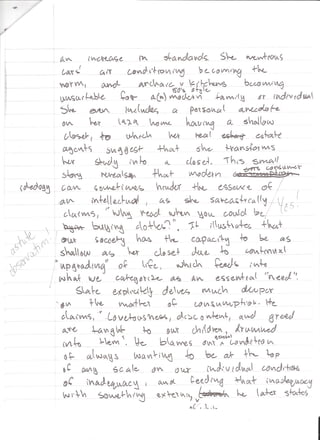 an increase in standards. She mentions
cars' air conditioning becoming the
norm, and archaic 50's style kitchens becoming
unsuitable for a(n) modern family or individual
She even includes a personal anecdote
on her 1929 home having a shallow
closet, to which her real estate
agents suggest that she transforms
her study into a closet. This small
story reveals that modern consumer
(ideology) can sometimes hinder the essence of
an intellectual, as she sarcastically / Yes!
claims, "Why read when you could be
buying clothes?". It illustrates that
our society has the capacity to be as
shallow as her closet due to continual
"upgrading" of life, which feeds into
what we categorize as an essential "need".
article observation!
Slate explicitly delves much deeper
on the matter of consumption. He
claims, "Covetousness, discontent, and greed
are taught to our children, drummed
into them". He blames our condition
of always wanting to be at the top
of any scale on our individual conditions
of inadequacy, and feeding that inadequacy
with something external, he later states